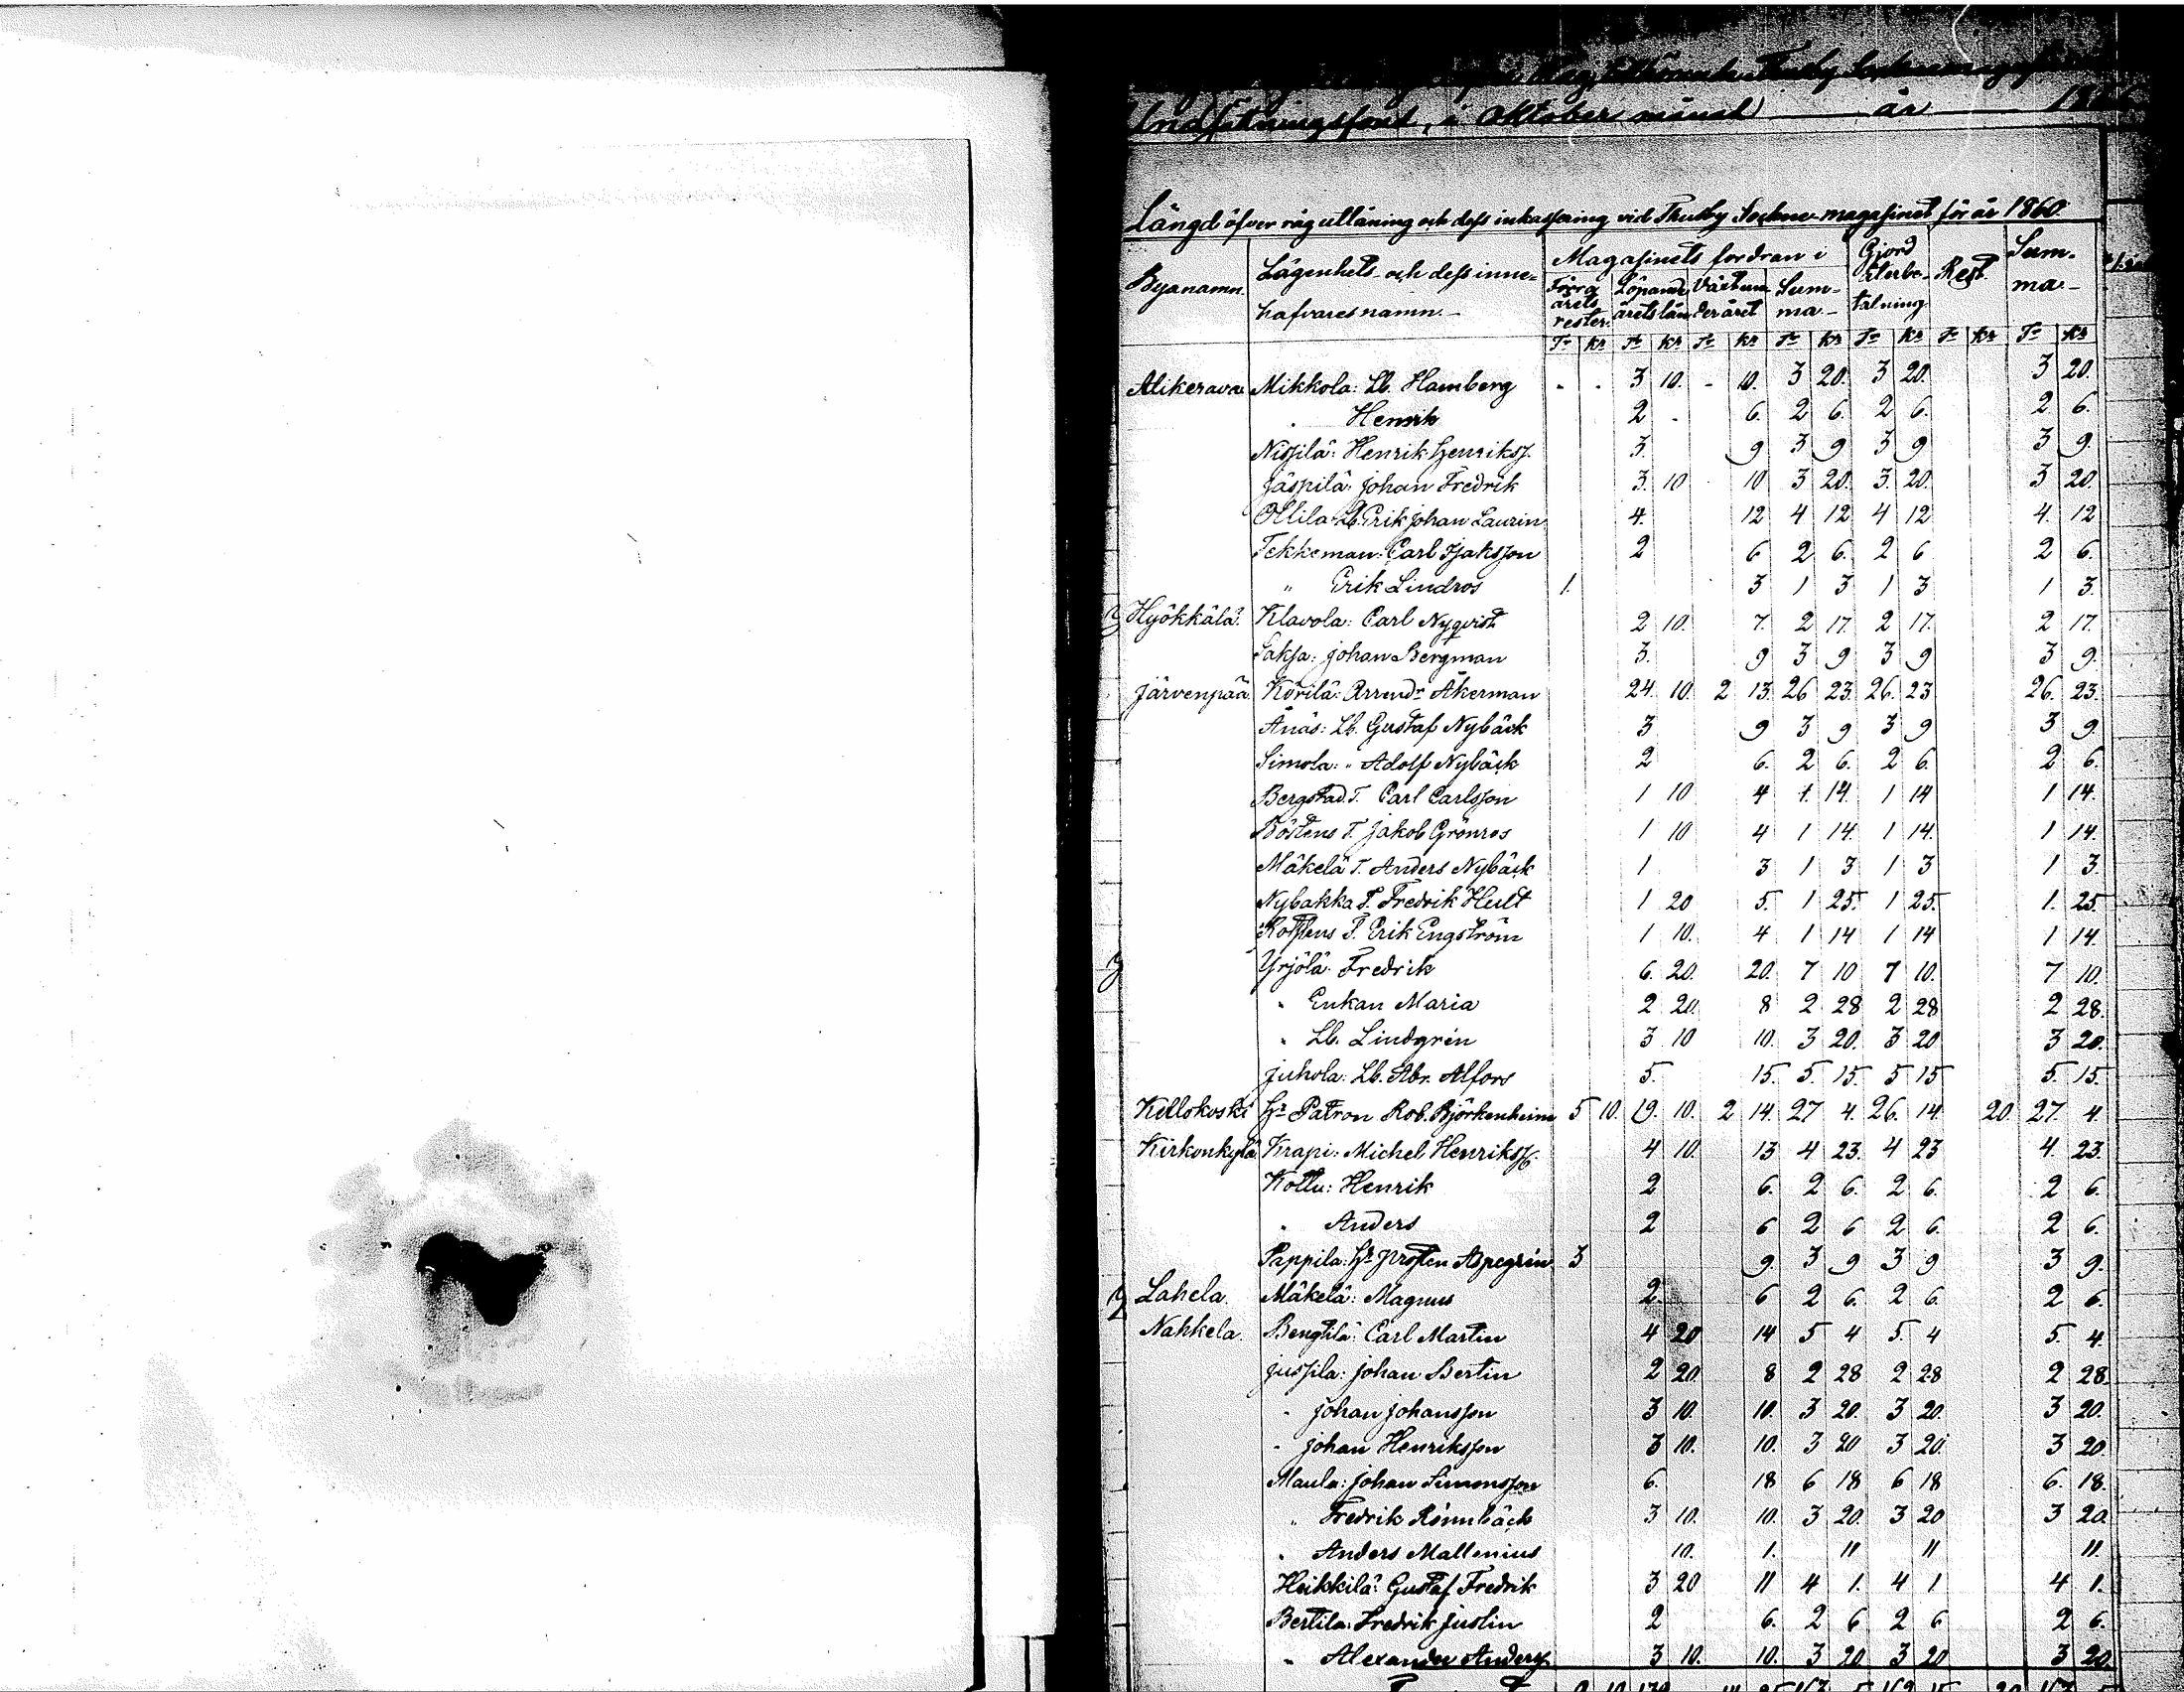 Undsätningsfond, i Oktober månad år
Längd öfver råg utlåning och dess inkassering vid Thusby Sockne-magasinet för år 1860.
Byanamn. Lägenhets- och dess inne- Magasinets fordran i Gjord återbe- Rest. Sum-
hafvares namn. Förra årets rester. Löpande årets lån Växt under året Sum- ma talning ma
Tr Kr Tr Kr Tr Kr Tr Kr Tr Kr Tr Kr Tr Kr
Alikerava Mikkola: Lb. Hamberg - - 3 10. - 10. 3 20. 3 20. 3 20.
" Henrik 2 - 6. 2 6. 2 6. 2 6.
Nissilä: Henrik Henrikss. 3. 9 3 9 3 9 3 9.
Jäspilä: Johan Fredrik 3. 10 10 3 20. 3. 20. 3 20.
Ollila Lb. Erik Johan Laurin 4. 12 4 12 4 12 4. 12
Tekkeman: Carl Isaksson 2 6 2 6. 2 6 2 6.
" Erik Lindros 1. 3 1 3 1 3 1 3.
Hyökkälä. Klavola: Carl Nyqvist 2 10. 7. 2 17. 2 17. 2 17.
Saksa: Johan Bergman 3. 9 3 9 3 9 3 9.
Järvenpää. Körilä: Arrendr Åkerman 24. 10. 2 13. 26 23. 26. 23 26. 23.
Änäs: Lb. Gustaf Nybäck 3 9 3 9 3 9 3 9
Simola: " Adolf Nybäck 2 6. 2 6. 2 6. 2 6.
Bergstad. T. Carl Carlsson 1 10 4 1. 14. 1 14 1 14.
T. Jakob Grönros 1 10 4 1 14. 1 14. 1 14.
Mäkelä T. Anders Nybäck 1 3 1 3 1 3 1 3.
Nybakka T. Fredrik Hult 1 20 5. 1 25. 1 25. 1. 25
T. Erik Engström 1 10. 4 1 14 1 14 1 14.
Yrjölä: Fredrik 6. 20. 20. 7 10 7 10. 7 10.
" Enkan Maria 2 20. 8 2 28 2 28 2 28.
" Lb. Lindgrén 3 10 10. 3 20. 3 20 3 20.
Juhola: Lb. Abr. Alfors 5. 15. 5. 15. 5 15 5. 15.
Kellokoski Hr Patron Rob. Björkenheim 5 10. 19. 10. 2 14. 27 4. 26. 14. 20. 27. 4.
Kirkonkylä Krapi: Michel Henrikss. 4 10. 13 4 23. 4 23 4. 23.
Kottu: Henrik 2 6. 2 6. 2 6. 2 6.
" Anders 2 6 2 6 2 6. 2 6.
Pappila: Hr Prosten Aspegrén 3 9. 3 9 3 9 3 9.
Lahela. Mäkelä: Magnus 2. 6 2 6. 2 6. 2 6.
Nahkela. Bengtilä: Carl Martin 4 20 14 5 4 5. 4 5. 4.
Jussila: Johan Bertin 2 20. 8 2 28 2 28 2 28.
" Johan Johansson 3 10. 10. 3 20. 3 20. 3 20.
" Johan Henriksson 3 10. 10. 3 20 3 20. 3 20.
Maula: Johan Simonsson 6. 18 6 18 6 18 6. 18.
" Fredrik Rönnbäck 3 10. 10. 3 20. 3 20 3 20.
" Anders Mallenius 10. 1. 11 11 11.
Heikkilä: Gustaf Fredrik 3 20 11 4 1. 4 1 4 1.
Bertila: Fredrik Justin 2 6. 2 6 2 6 2 6.
" Alexander Anderss. 3 10. 10. 3 20 3 20 3 20.